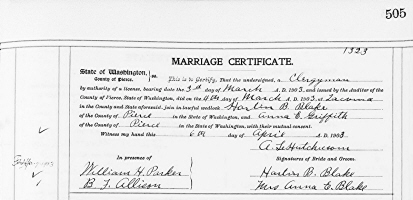 505
1323
MARRIAGE CERTIFICATE.
State of Washington,
County of Pierce. ss. This is to Certify, That the undersigned, a Clergyman
by authority of a license, bearing date the 3rd day of March A. D. 1903, and issued by the Auditor of the
County of Pierce, State of Washington, did on the 4th day of March A. D. 1903, at Tacoma
in the County and State aforesaid, join in lawful wedlock Harlin B. Blake
of the County of Pierce in the State of Washington, and Anna E. Griffith
of the County of Pierce in the State of Washington, with their mutual consent.
Witness my hand this 6th day of April A. D. 1903.
In presence of
William H. Parker
B. F. Allison
Signatures of Bride and Groom.
B. Blake
Mrs Anna E. Blake